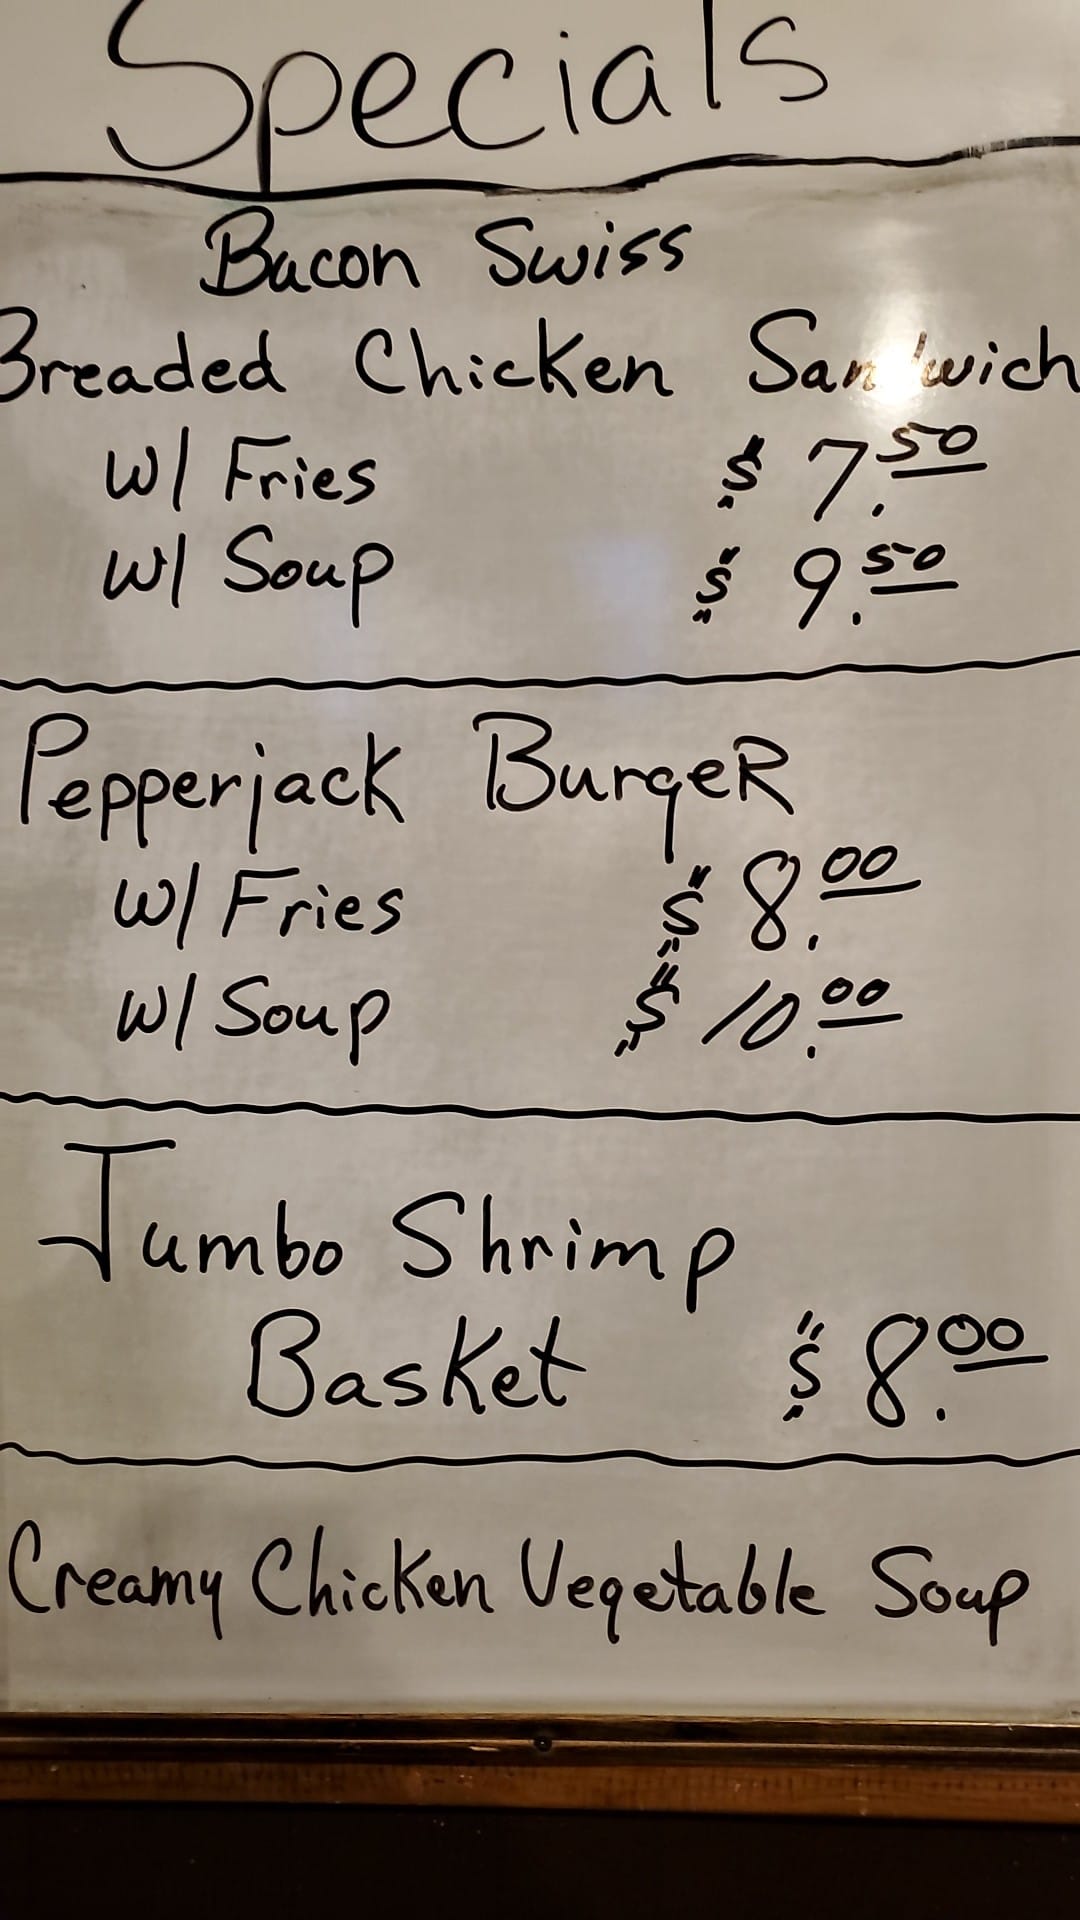 Specials
Bacon Swiss
Breaded Chicken Sandwich
w/ Fries $ 7.50
w/ Soup $ 9.50
Pepperjack BurgeR
w/ Fries $ 8.00
w/ Soup $ 10.00
Jumbo Shrimp
Basket $ 8.00
Creamy Chicken Vegetable Soup